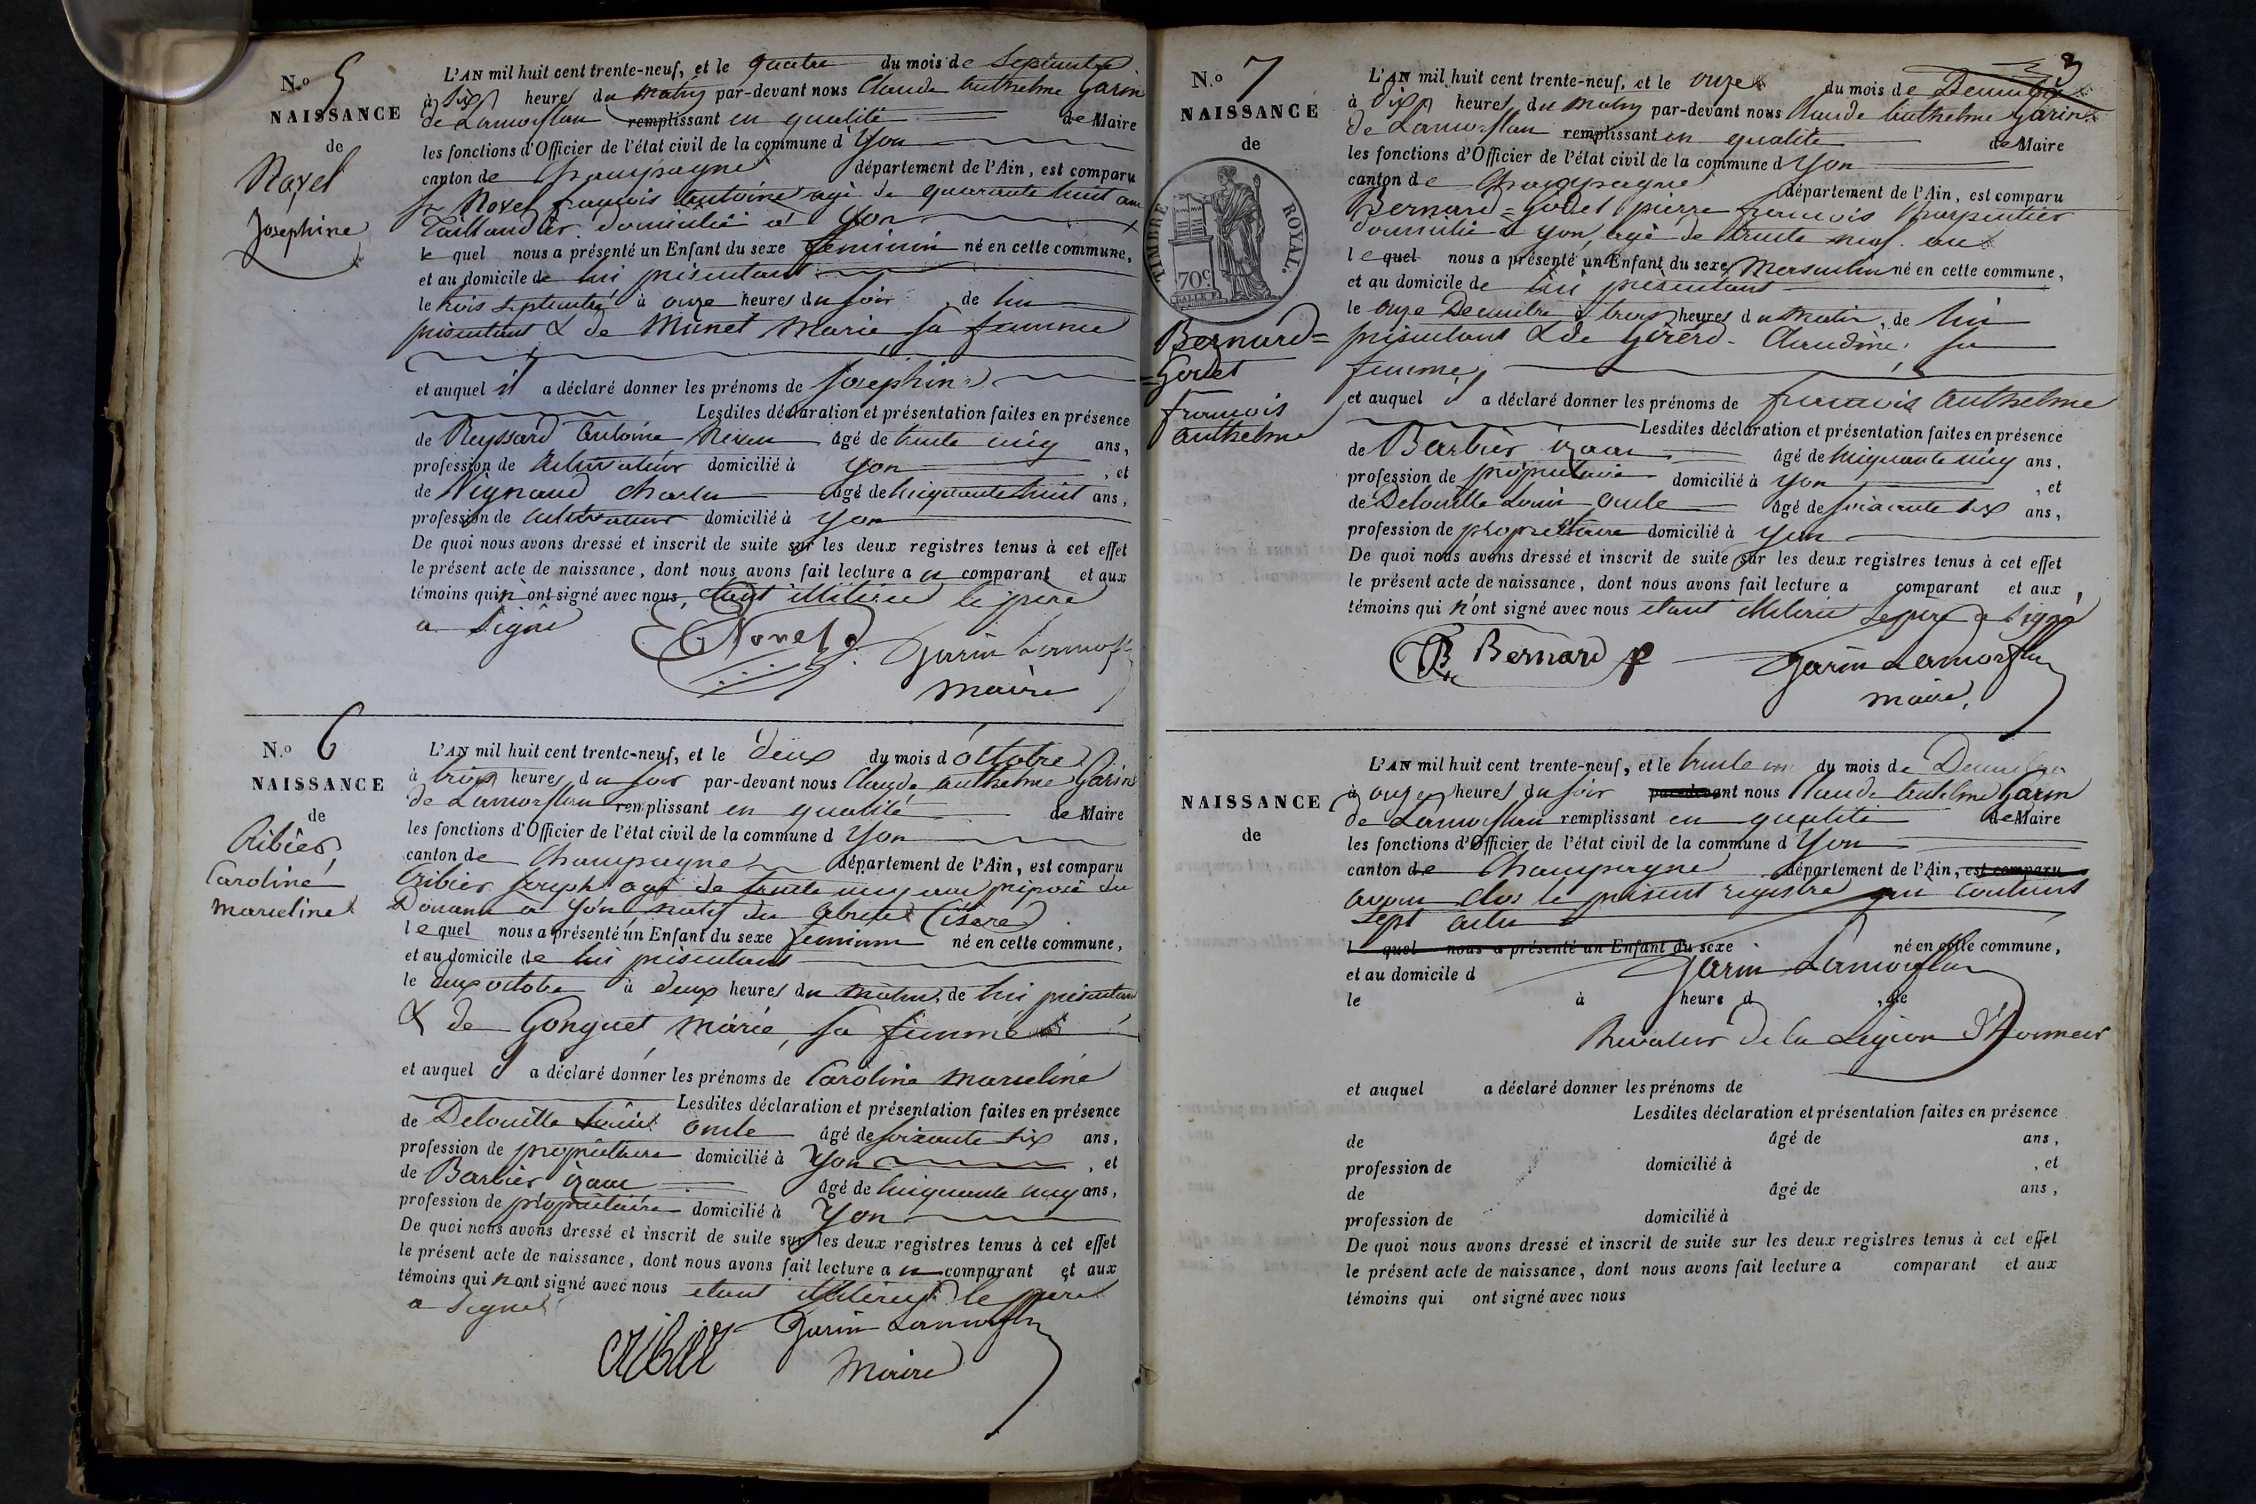 N.o 5
NAISSANCE
de
Novel
Joséphine
L'AN mil huit cent trente-neuf, et le quatre du mois de Septembre
à dix heures du matin par-devant nous Claude Anthelme Garin
de Lamorflan remplissant en qualité de Maire
les fonctions d'Officier de l'état civil de la commune d'Yon
canton de Champagne département de l'Ain, est comparu
Sr Novel françois Antoine agé de quarante huit ans
Taillandier domicilié à Yon
le quel nous a présenté un Enfant du sexe féminin né en cette commune,
et au domicile de lui présentant
le trois septembre à onze heures du soir, de lui
présentant & de Munet Marie, sa femme
et auquel il a déclaré donner les prénoms de Joséphine
Lesdites déclaration et présentation faites en présence
de Reyssard Antoine âgé de trente cinq ans,
profession de cultivateur domicilié à Yon, et
de Vignaud Charles âgé de cinquante huit ans,
profession de cultivateur domicilié à Yon
De quoi nous avons dressé et inscrit de suite sur les deux registres tenus à cet effet
le présent acte de naissance, dont nous avons fait lecture au comparant et aux
témoins qui n'ont signé avec nous, étant illitérés le père
a signé
Novel
Garin Lamorflan
Maire
N.o 6
NAISSANCE
de
Cribier
Caroline
Marceline
L'AN mil huit cent trente-neuf, et le deux du mois d'octobre
à trois heures du soir par-devant nous Claude Anthelme Garin
de Lamorflan remplissant en qualité de Maire
les fonctions d'Officier de l'état civil de la commune d Yon
canton de Champagne département de l'Ain, est comparu
Cribier Joseph agé de trente cinq ans préposé des
Douanes à Yon natif des Abrets (isère)
le quel nous a présenté un Enfant du sexe feminin né en cette commune,
et au domicile de lui présentant
le deux octobre à deux heures du matin, de lui présentant
& de Gonguet Marie, sa femme
et auquel il a déclaré donner les prénoms de Caroline Marceline
Lesdites déclaration et présentation faites en présence
de Delouille Louis oncle âgé de soixante six ans,
profession de propriétaire domicilié à Yon, et
de Barbier âgé de cinquante cinq ans,
profession de propriétaire domicilié à Yon
De quoi nous avons dressé et inscrit de suite sur les deux registres tenus à cet effet
le présent acte de naissance, dont nous avons fait lecture au comparant et aux
témoins qui n'ont signé avec nous étant illitérés le père
a signé
Cribier
Garin Lamorflan
Maire
3
N.o 7
NAISSANCE
de
TIMBRE ROYAL.
70c
Bernard=
=Godet
françois
Anthelme
L'AN mil huit cent trente-neuf, et le onze du mois de Decembre
à dix heures du matin par-devant nous Claude Anthelme Garin
de Lamorflan remplissant en qualité de Maire
les fonctions d'Officier de l'état civil de la commune d Yon
canton de Champagne département de l'Ain, est comparu
Bernard=Godet pierre françois Charpentier
domicilié à Yon, agé de trente neuf ans
le quel nous a présenté un Enfant du sexe Masculin né en cette commune,
et au domicile de lui présentant
le onze Decembre à trois heures du matin, de lui
présentant & de Gérérd Claudine, sa
femme
et auquel il a déclaré donner les prénoms de françois Anthelme
Lesdites déclaration et présentation faites en présence
de Barbier âgé de cinquante cinq ans,
profession de propriétaire domicilié à Yon, et
de Delouille Louis oncle âgé de soixante six ans,
profession de propriétaire domicilié à Yon
De quoi nous avons dressé et inscrit de suite sur les deux registres tenus à cet effet
le présent acte de naissance, dont nous avons fait lecture a comparant et aux
témoins qui n'ont signé avec nous étant illitérés le père a signé
Bernard
Garin Lamorflan
Maire,
NAISSANCE
de
L'AN mil huit cent trente-neuf, et le trente un du mois de Decembre
à onze heures du soir par-devant nous Claude Anthelme Garin
de Lamorflan remplissant en qualité de Maire
les fonctions d'Officier de l'état civil de la commune d Yon
canton de Champagne département de l'Ain, est comparu
avons clos le présent registre qui contient
sept actes
l quel nous a présenté un Enfant du sexe né en cette commune,
et au domicile d
Garin Lamorflan
le à heure d, de
Chevalier de la Légion d'Honneur
et auquel a déclaré donner les prénoms de
Lesdites déclaration et présentation faites en présence
de âgé de ans,
profession de domicilié à, et
de âgé de ans,
profession de domicilié à
De quoi nous avons dressé et inscrit de suite sur les deux registres tenus à cet effet
le présent acte de naissance, dont nous avons fait lecture a comparant et aux
témoins qui ont signé avec nous